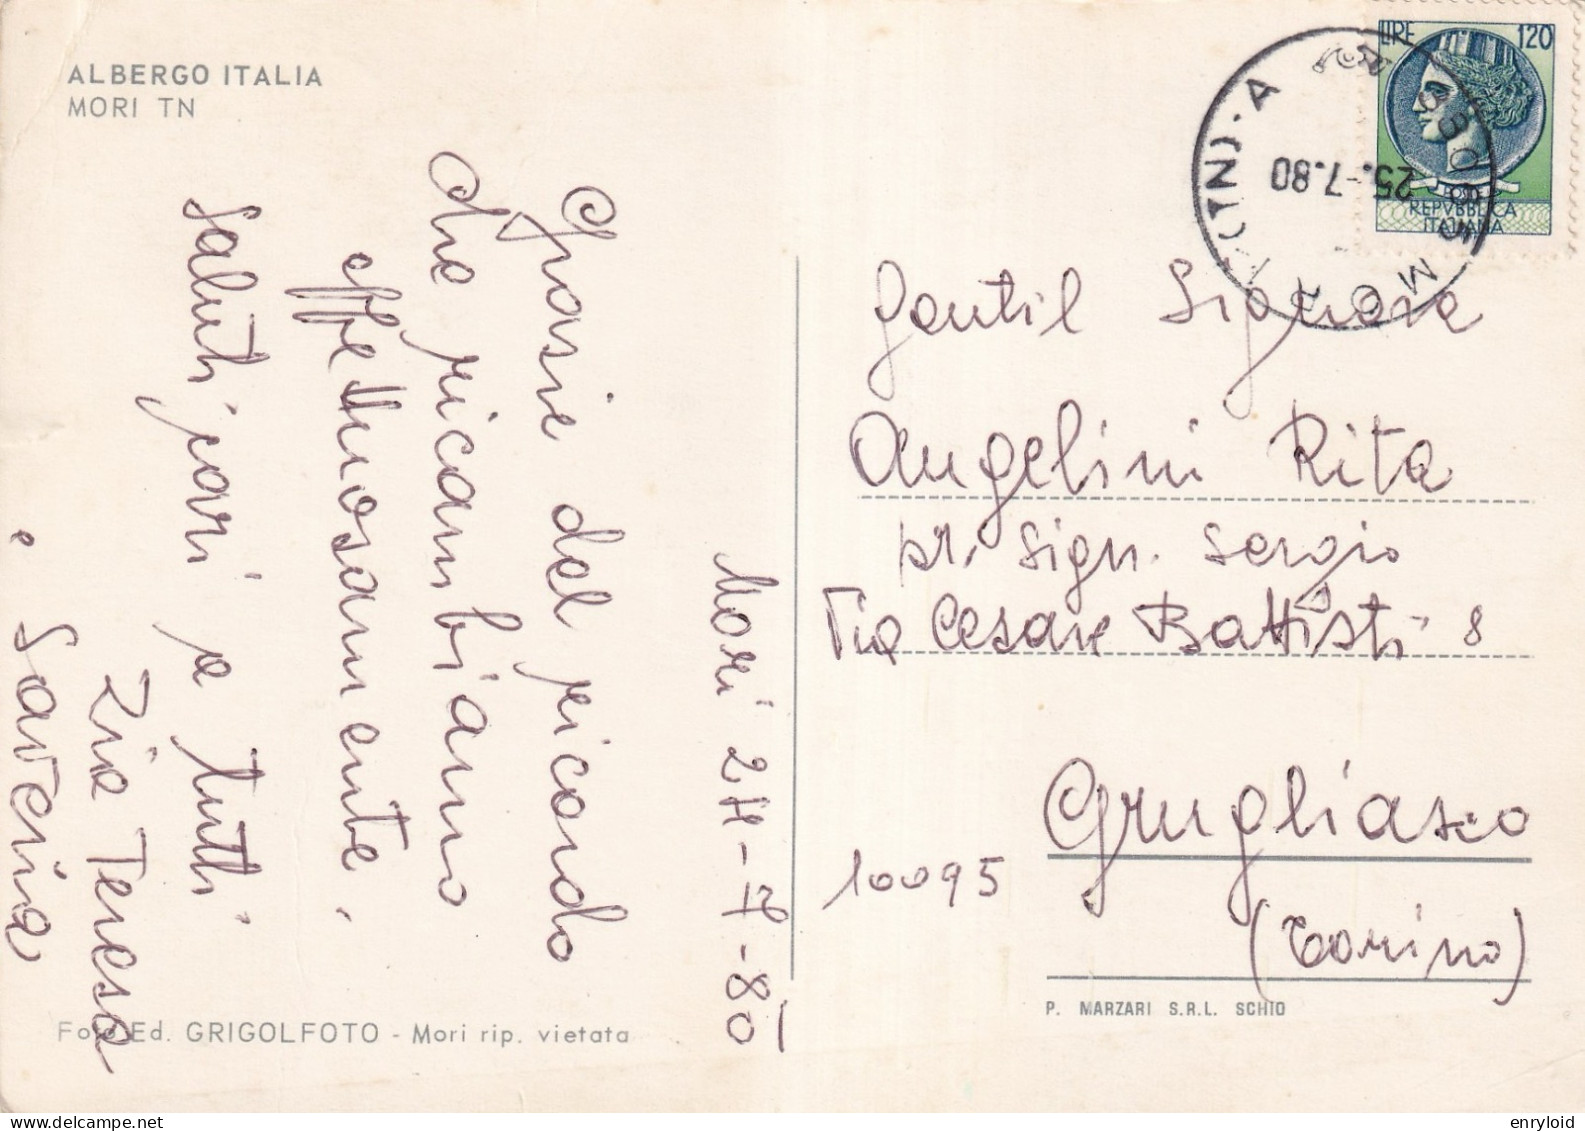 ALBERGO ITALIA
MORI TN
Mori 24-7-80
Grasie del ricordo
che ricambiamo
effettuosamente.
Saluti pari a tutti
Zia Teresa
e Saverina
LIRE 120
POSTE
REPVBBLICA
ITALIANA
38065 MORI (TN) - A
25.-7.80
Gentil Signora
Angelini Rita
pr. Sign. Sergio
Via Cesare Battisti 8
10095
Grugliasco
(Torino)
Foto Ed. GRIGOLFOTO - Mori rip. vietata
P. MARZARI S.R.L. SCHIO
enryloid